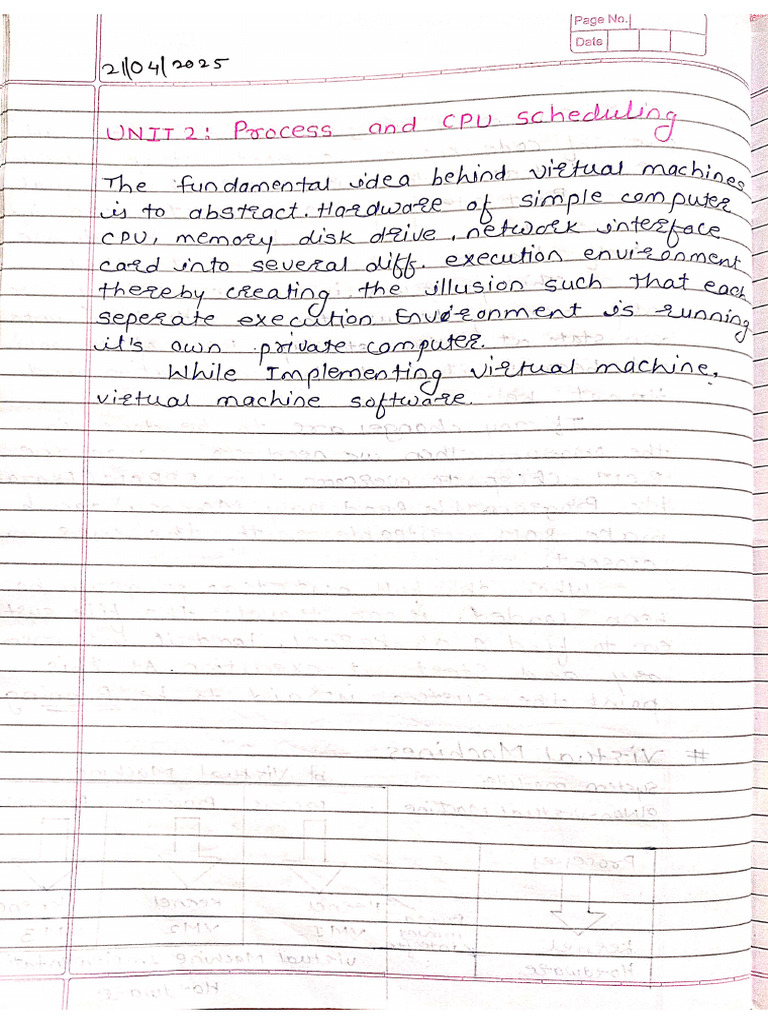 Page No.
Date
21/04/2025
UNIT 2: Process and CPU scheduling
The fundamental idea behind virtual machines
is to abstract. Hardware of simple computer
CPU, memory disk drive, network interface
card into several diff. execution environment
thereby creating the illusion such that each
seperate execution Environment is running
it's own private computer.
While Implementing virtual machine,
virtual machine software.